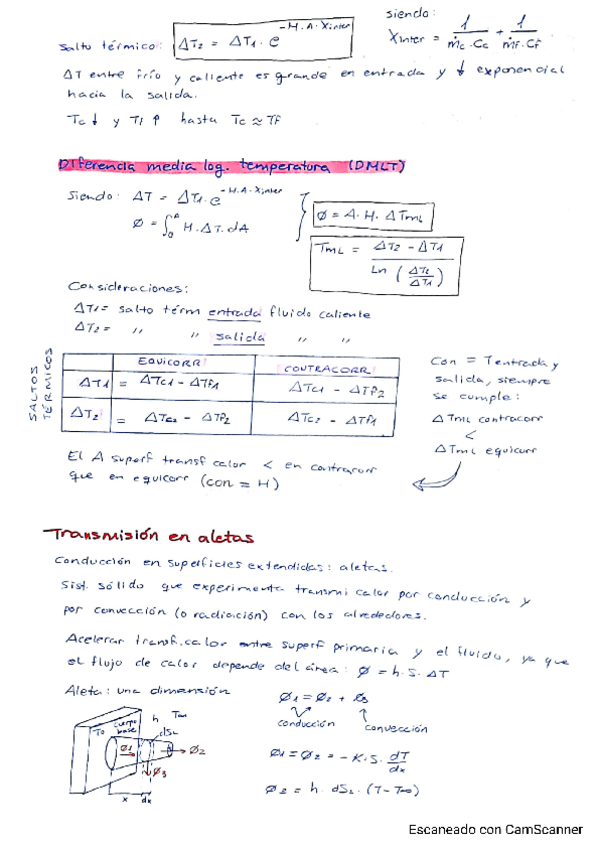 siendo:
Salto térmico: ΔT2 = ΔT1 · e^(-H.A.Xinter)
Xinter = 1/(ṁc.Cc) + 1/(ṁf.Cf)
ΔT entre frío y caliente es grande en entrada y ↓ exponencial
hacia la salida.
Tc ↓ y Tf ↑ hasta Tc ≈ Tf
Diferencia media log. temperatura (DMLT)
Siendo: ΔT = ΔT1 · e^(-H.A.Xinter)
Ø = ∫₀ᴬ H.ΔT.dA
Ø = A.H. ΔTML
TML = (ΔT2 - ΔT1) / Ln (ΔT2/ΔT1)
Consideraciones:
ΔT1 = salto térm entrada fluido caliente
ΔT2 = '' '' salida '' ''
SALTOS TÉRMICOS
EQUICORR CONTRACORR
ΔT1 = ΔTc1 - ΔTf1 ΔTc1 - ΔTf2
ΔT2 = ΔTc2 - ΔTf2 ΔTc2 - ΔTf1
Con = Tentrada y
salida, siempre
se cumple:
ΔTML contracorr
<
ΔTML equicorr
El A superf transf calor < en contracorr
que en equicorr (con = H)
Transmisión en aletas
Conducción en superficies extendidas: aletas.
Sist. sólido que experimenta transmi calor por conducción y
por convección (o radiación) con los alrededores.
Acelerar transf.calor entre superf primaria y el fluido, ya que
el flujo de calor depende del área: Ø = h.S. ΔT
Aleta: una dimensión
Ø1 = Ø2 + Ø3
conducción
convección
To cuerpo base h T∞
dSL
Ø1 Ø2
Ø3
x dx
Ø1 = Ø2 = -K.S. dT/dx
Ø2 = h. dSL . (T-T∞)
Escaneado con CamScanner